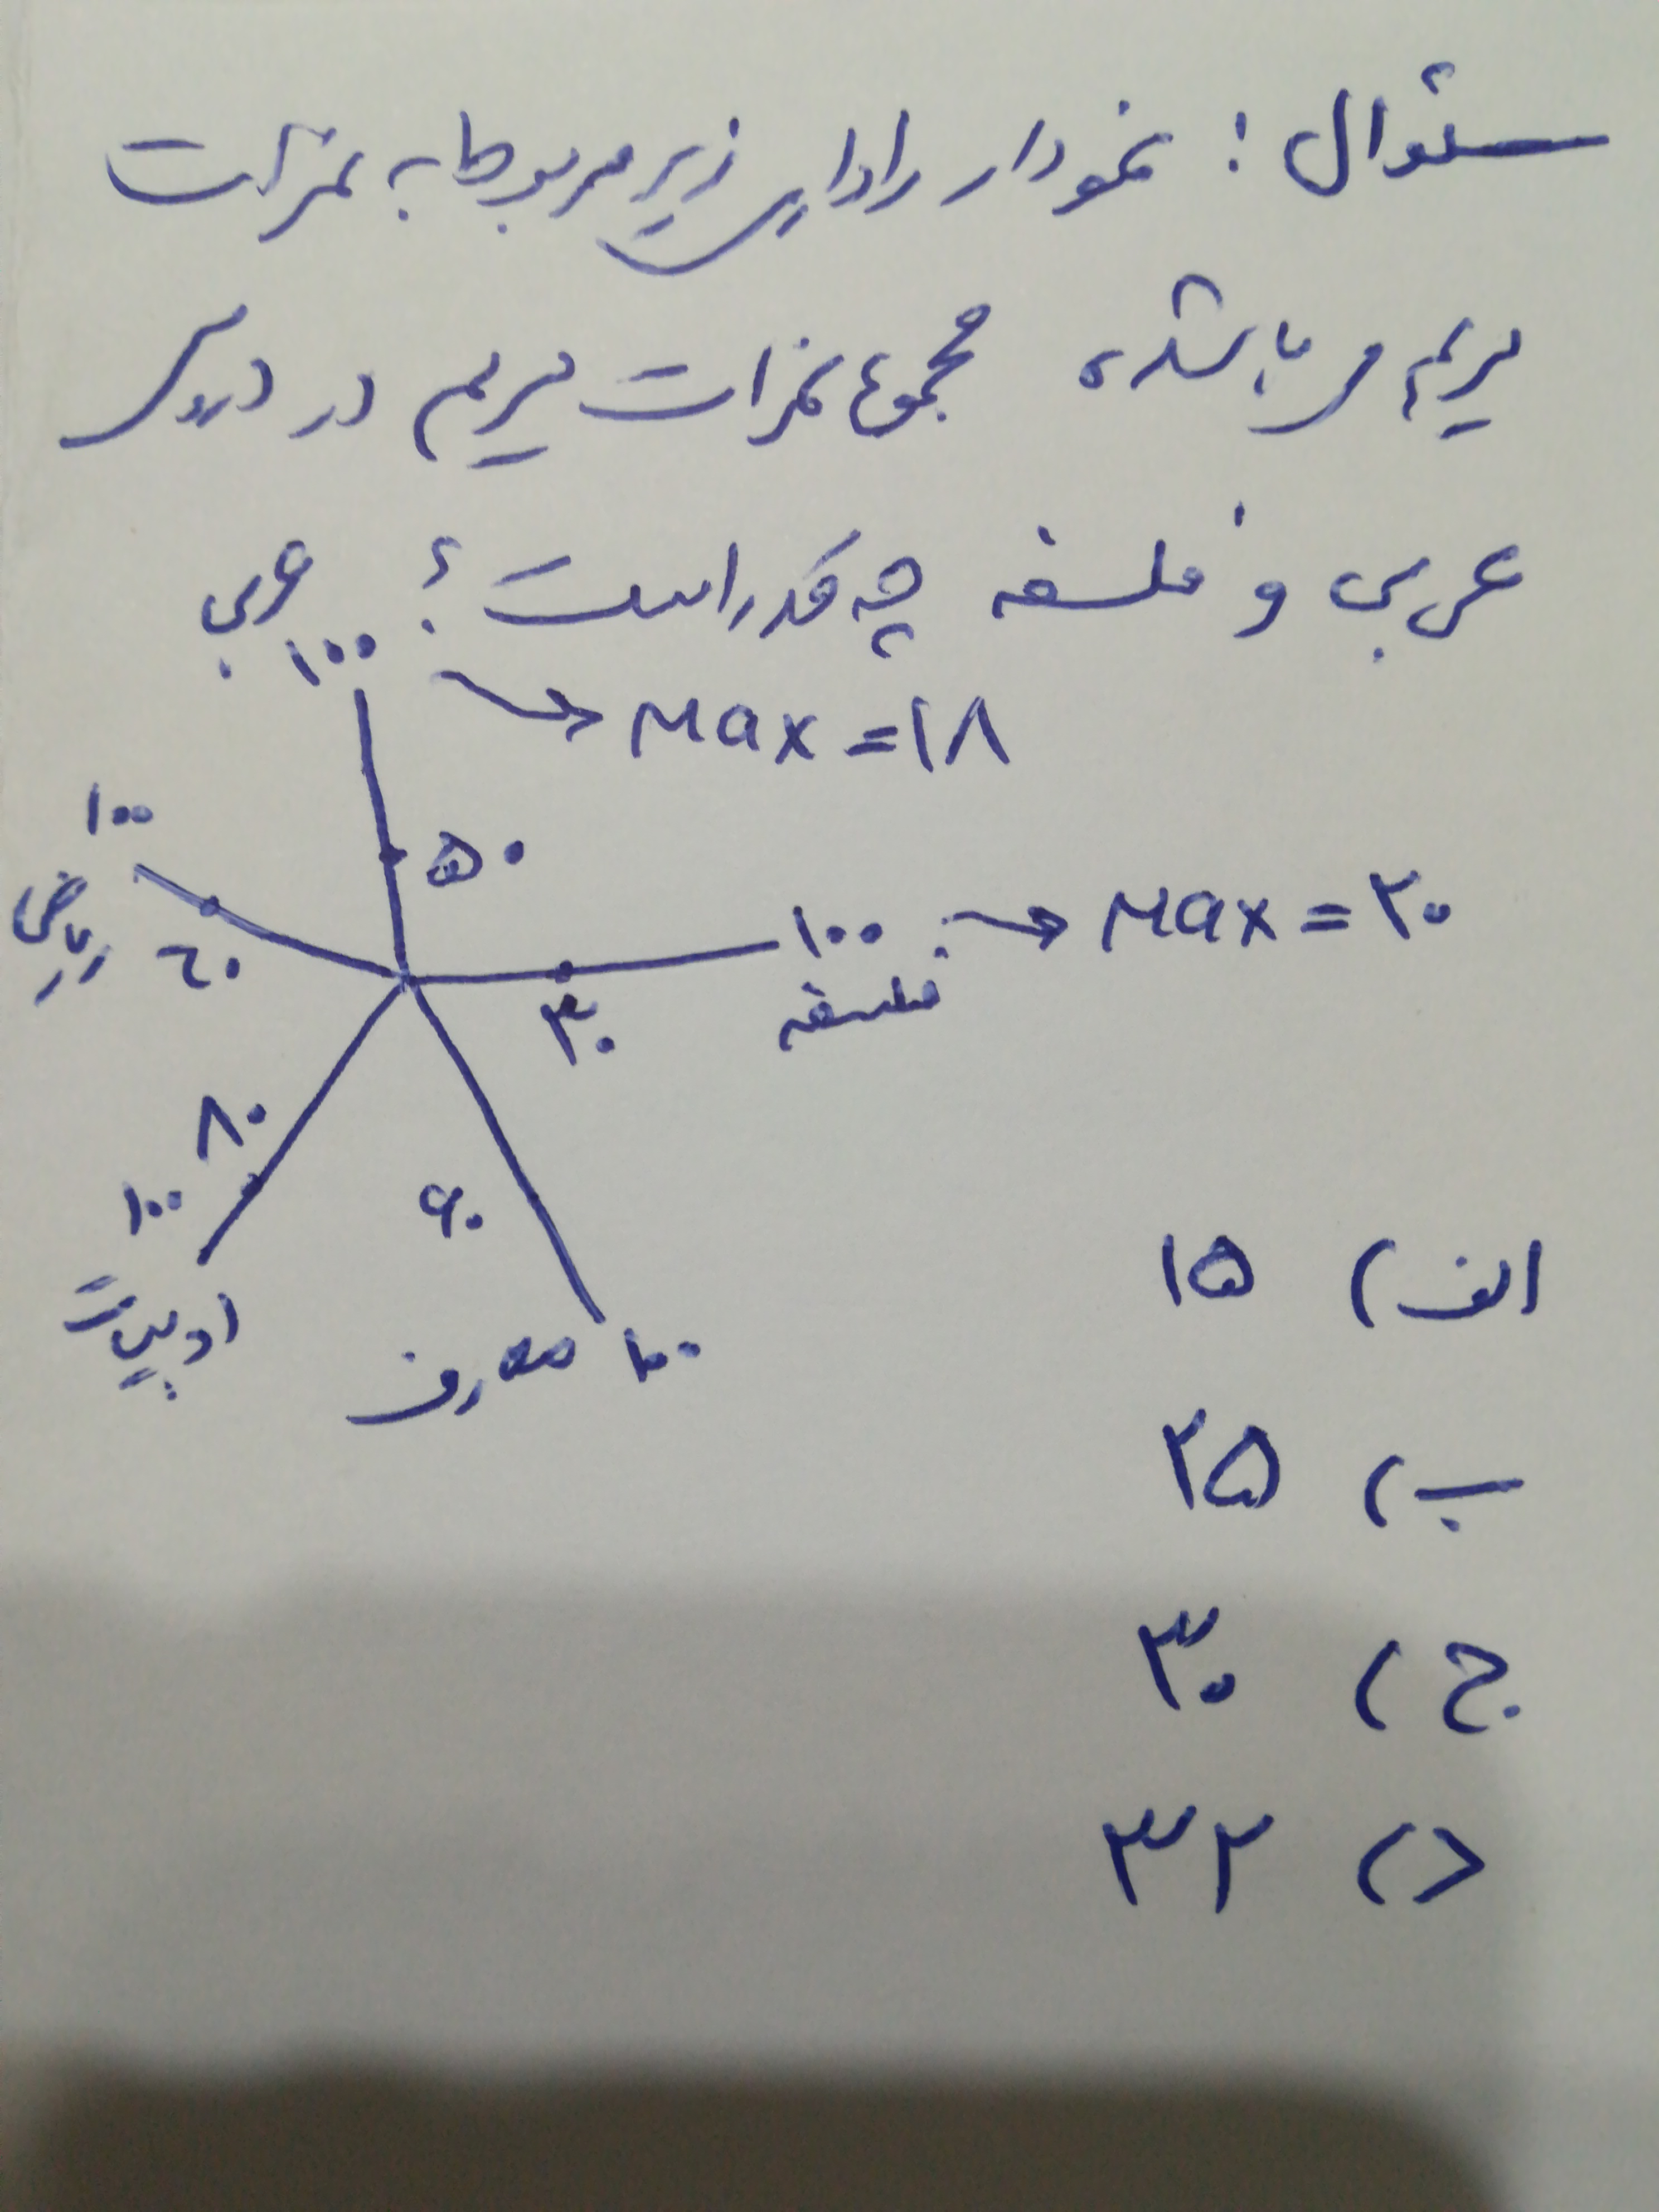 سئوال : نمودار راداری زیر مربوط به نمرات
مریم می باشد، مجموع نمرات مریم در دروس
عربی و فلسفه چه قدر است؟
عربی
۱۰۰
Max = ۱۸
۵۰
۱۰۰
ریاضی
۶۰
۱۰۰
Max = ۲۰
فلسفه
۳۰
۸۰
۱۰۰
ادبیات
۹۰
۱۰۰
معارف
الف) ۱۵
ب) ۲۵
ج) ۳۰
د) ۳۲